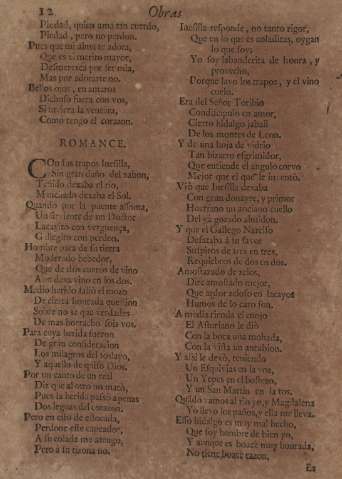 12
Obras
Piedad, quien ama tan cuerdo,
Piedad, pero no perdon.
Pues que mi alma te adora,
Que es el merito mayor,
Desmerezca por
Mas por adorarte no.
Bellos ojos, en amaros
Dichoso fuera con vos,
Si tuviera la ventura,
Como tengo el corazon.
ROMANCE.
Con sus trapos Inesilla,
Sin gran daño del xabon,
Teñido dexaba el rio,
Manchado dexaba el Sol.
Quando por la puente assoma,
Un sirviente de un Doctor
Lacayito con verguença,
Gallegito con perdon.
Hombre para de su tierra
Moderado bebedor,
Que de dos cueros de vino
Aun dexa vino en los dos.
Medio herido salió el mozo
De cierta honrada question
Sobre no se que verdades
De mas borracho sois vos.
Para cuya herida fueron
De gran consideracion
Los milagros del
Y aquello de quiso Dios.
Por un canto de un real
Dir que al otro no mató,
Pues la herida passó apenas
Dos leguas del corazon.
Pero en esto de estocada,
Perdone este capeador,
A su colada me atengo,
Pero a su tizona no.
Inesilla responde, no tanto rigor,
Que en lo que es coladitas, oygan
lo que soy:
Yo soy labanderita de honra, y
provecho,
Porque lavo los trapos, y el vino
cuelo.
Era del Señor Toribio
Conduciquio en amor,
Cierto hidalgo jabali
De los montes de Leon.
Y de una hoja de vidrio
Tan bizarro esgrimidor,
Que entiende el angulo corvo
Mejor que el que le inventó.
Vió que Inesilla dexaba
Con gran donayre, y primor
Hostrino un anciano cuello
Del ya gozado almidon.
Y que el Gallego Narciso
Desataba á su favor
Suspiros de tres en tres,
Requiebros de dos en dos.
Amostazado de zelos,
Dire amostado mejor,
Que aquel adose en lacayos
Humos de lo caro son.
A media rienda el enojo
El Asturiano le dió
Con la boca una mohada,
Con la vista un antubion.
Y assi le devó, teniendo
Un Esquivias en la voz,
Un Yepes en el bostezo,
Y un San Martin en la tos.
Quando vamos al rio yo, y Magdalena
Yo llevo los paños, y ella me lleva.
Esso hidalgo es muy mal hecho,
Que soy hombre de bien yo,
Y aunque es boaçé muy honrada,
No tiene boaçé razon,
Es